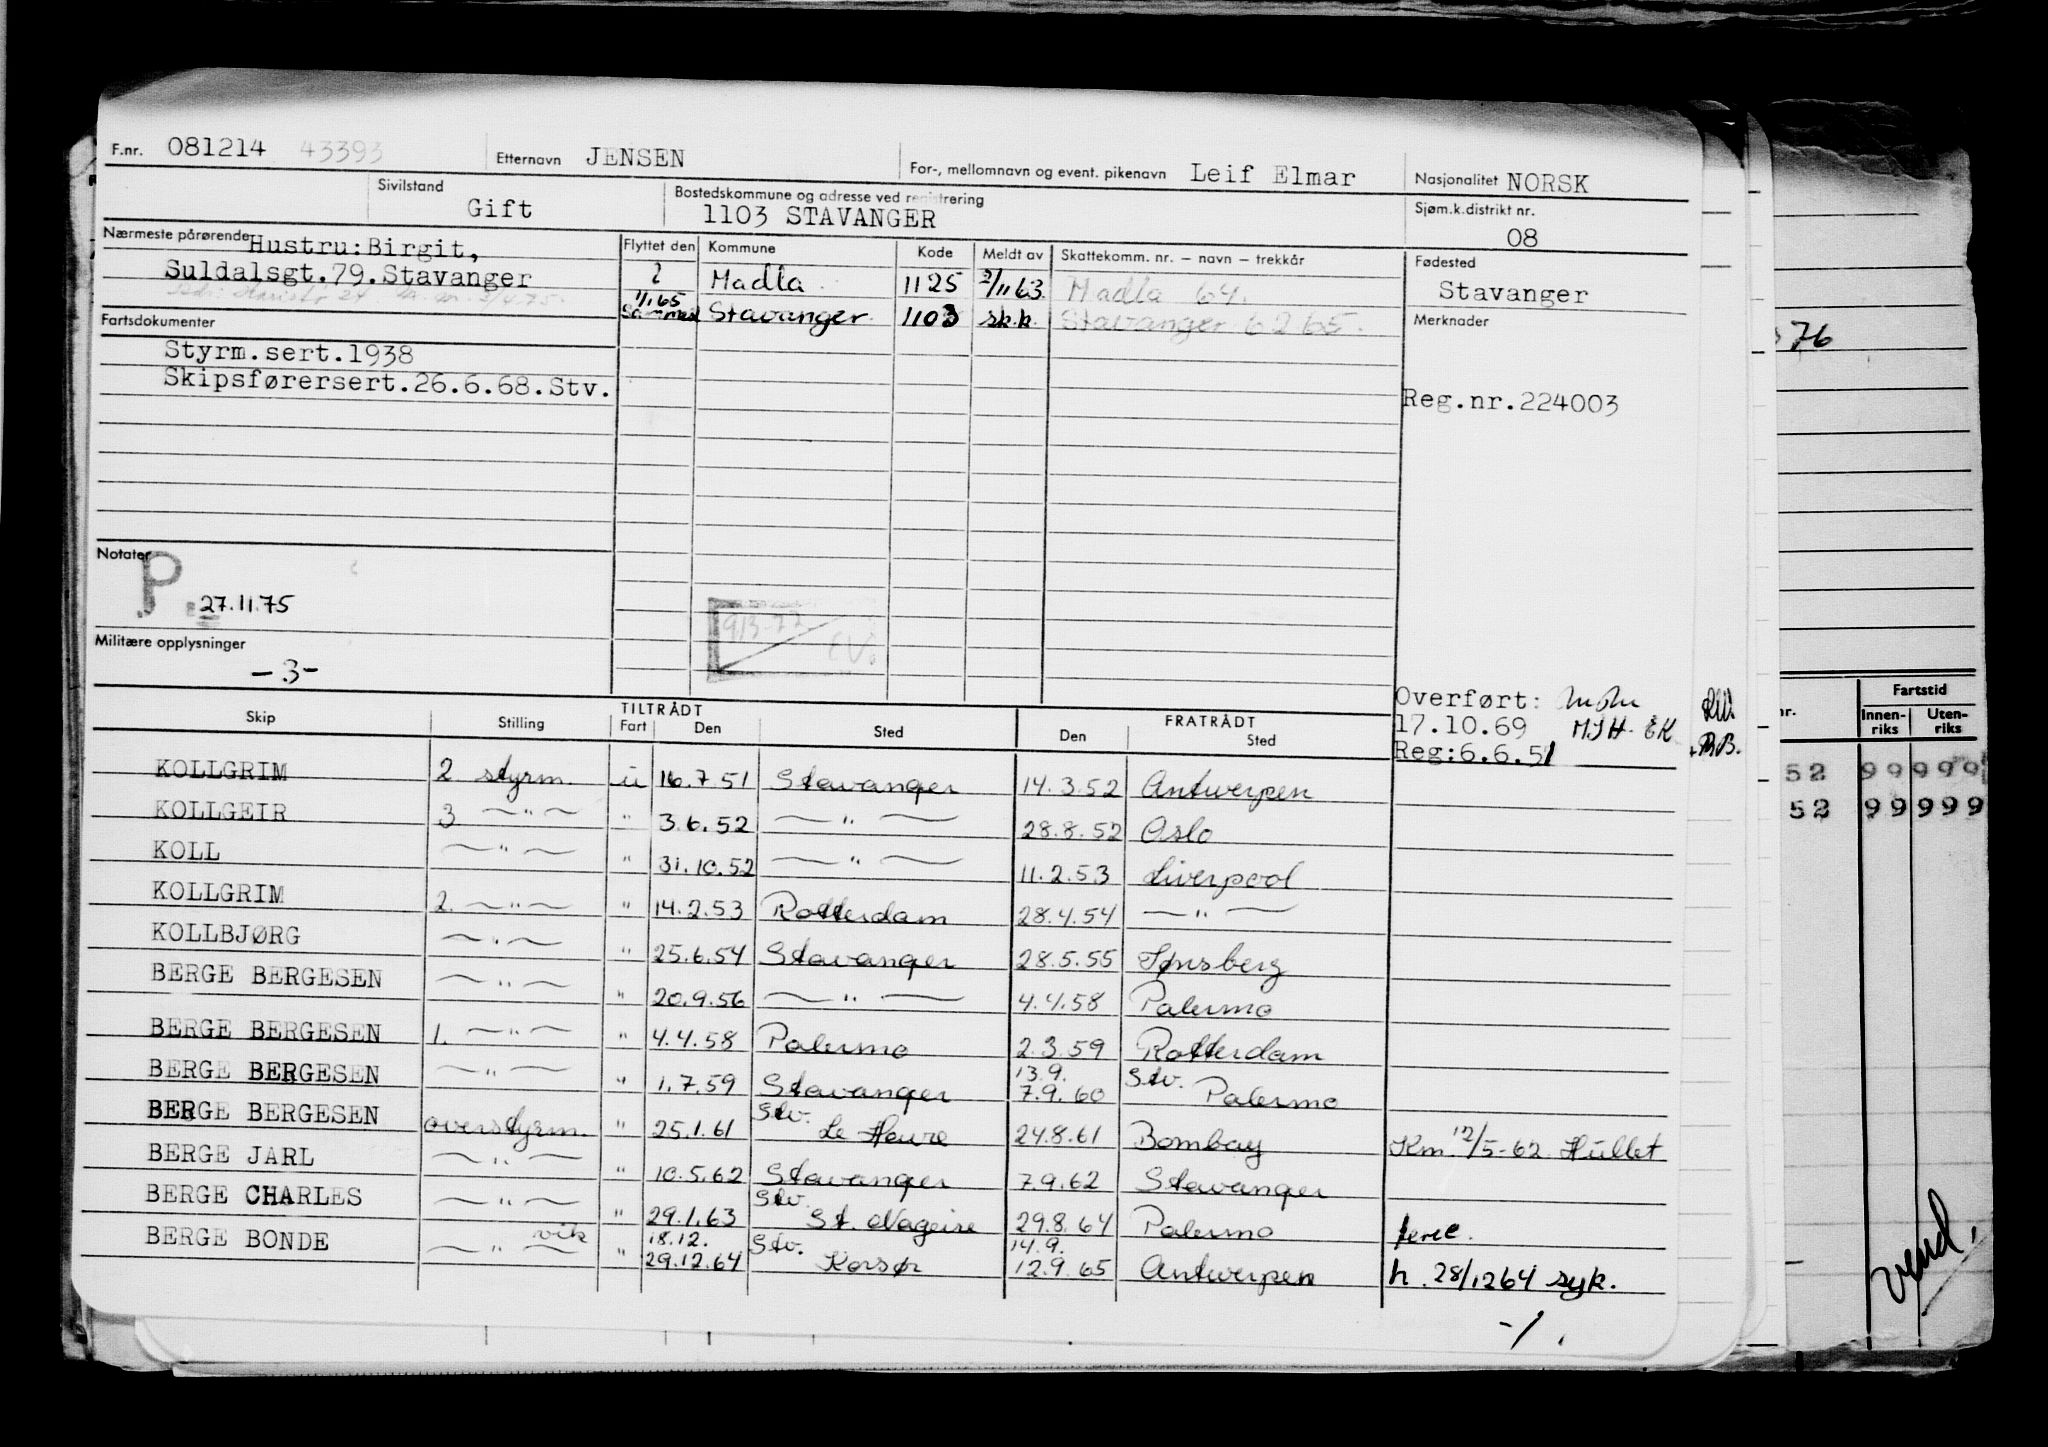 F.nr. 081214 43393 Etternavn JENSEN For-, mellomnavn og event. pikenavn Leif Elmar Nasjonalitet NORSK
Sivilstand Gift Bostedskommune og adresse ved registrering 1103 STAVANGER Sjøm.k.distrikt nr. 08
Nærmeste pårørende Hustru: Birgit, Flyttet den Kommune Kode Meldt av Skattekomm. nr. – navn – trekkår Fødested
Suldalsgt.79.Stavanger ? Madla 1125 2/11 63. Madla 64. Stavanger
1/1 65 Stavanger 1103 sk.k. Stavanger 62 65.
Fartsdokumenter Merknader
Styrm.sert.1938
Skipsførersert.26.6.68.Stv. Reg.nr.224003
76
Notater
P. 27.11.75
913-72
Militære opplysninger
-3-
Overført:
17.10.69 MJH. EK
Reg:6.6.51
Skip Stilling TILTRÅDT Fart Den Sted FRATRÅDT Den Sted
KOLLGRIM 2 styrm. u 16.7.51 Stavanger 14.3.52 Antwerpen
KOLLGEIR 3 —"— " 3.6.52 —"— 28.8.52 Oslo
KOLL —"— " 31.10.52 —"— 11.2.53 Liverpool
KOLLGRIM 2. —"— " 14.2.53 Rotterdam 28.4.54 —"—
KOLLBJØRG —"— " 25.6.54 Stavanger 28.5.55 Tønsberg
BERGE BERGESEN —"— " 20.9.56 —"— 4.4.58 Palermo
BERGE BERGESEN 1. —"— " 4.4.58 Palermo 2.3.59 Rotterdam
BERGE BERGESEN —"— " 1.7.59 Stavanger 13.9. 7.9.60 Stv. Palermo
BERGE BERGESEN overstyrm. " 25.1.61 Stv. Le Havre 24.8.61 Bombay Km. 12/5-62 Hullet
BERGE JARL —"— " 10.5.62 Stavanger 7.9.62 Stavanger
BERGE CHARLES —"— " 29.1.63 Stv. St. Nazeire 29.8.64 Palermo ferie.
BERGE BONDE —"— vik " 18.12. 29.12.64 Stv. Korsør 14.9. 12.9.65 Antwerpen h. 28/12 64 syk.
-/.
nr. Fartstid
Innen-riks Uten-riks
52 99 999
52 99 999
vend.